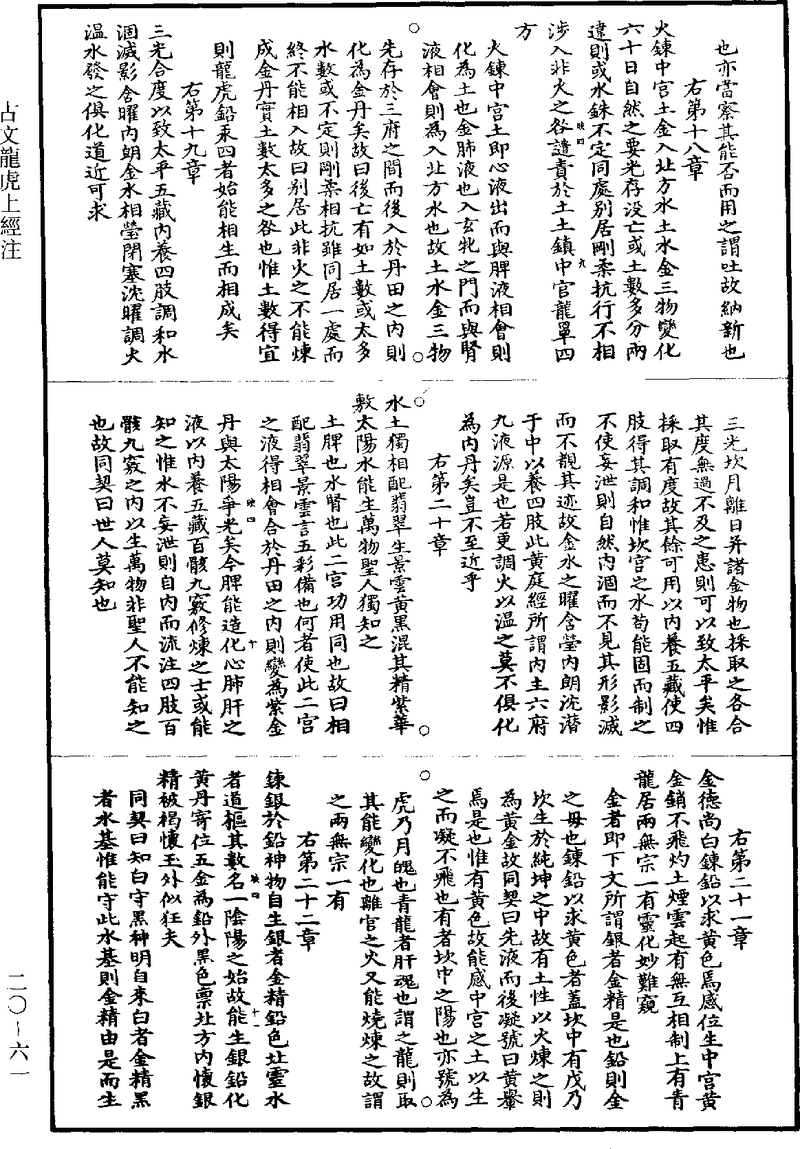 古文龍虎上經注
二〇—六一
也亦當察其能否而用之謂吐故納新也
右第十八章
火鍊中宮土金入北方水土水金三物變化
六十日自然之要先存没亡或土數多分兩
違則或水銖不定同處別居剛柔抗行不相
涉入非火之咎譴責於土土鎮中宮龍罩四
方
火鍊中宮土即心液出而與脾液相會則
化為土也金肺液也入玄牝之門而與腎
液相會則為入北方水也故土水金三物
先存於三府之間而後入於丹田之内則
化為金丹矣故曰後亡有如土數或太多
水數或不定則剛柔相抗雖同居一處而
終不能相入故曰別居此非火之不能煉
成金丹實土數太多之咎也惟土數得宜
則龍虎鉛汞四者始能相生而相成矣
右第十九章
三光合度以致太平五藏内養四肢調和水
涸滅影含曜内朗金水相瑩閉塞沈曜調火
温水發之俱化道近可求
三光坎月離日并諸金物也採取之各合
其度無過不及之患則可以致太平矣惟
採取有度故其餘可用以内養五藏使四
肢得其調和惟坎宫之水苟能固而制之
不使妄泄則自然内涸而不見其形影滅
而不覩其迹故金水之曜含瑩内朗沈潛
于中以養四肢此黄庭經所謂内主六府
九液源是也若更調火以温之莫不俱化
為内丹矣豈不至近乎
右第二十章
水土獨相配翡翠生景雲黄黑混其精紫華
敷太陽水能生萬物聖人獨知之
土脾也水腎也此二宫功用同也故曰相
配翡翠景雲言五彩備也何者使此二宫
之液得相會合於丹田之内則變為紫金
丹與太陽爭光矣今脾能造化心肺肝之
液以内養五藏百骸九竅修煉之士或能
知之惟水不妄泄則自内而流注四肢百
骸九竅之内以生萬物非聖人不能知之
也故同契曰世人莫知也
右第二十一章
金德尚白鍊鉛以求黄色焉感位生中宮黄
金銷不飛灼土煙雲起有無互相制上有青
龍居兩無宗一有靈化妙難窺
金者即下文所謂銀者金精是也鉛則金
之母也鍊鉛以求黄色者蓋坎中有戊乃
坎生於純坤之中故有土性以火煉之則
為黄金故同契曰先液而後凝號曰黄轝
焉是也惟有黄色故能感中宮之土以生
之而凝不飛也有者坎中之陽也亦號為
虎乃月魄也青龍者肝魂也謂之龍則取
其能變化也離宫之火又能燒煉之故謂
之兩無宗一有
右第二十二章
鍊銀於鉛神物自生銀者金精鉛色北靈水
者道樞其數名一陰陽之始故能生銀鉛化
黄丹寄位五金為鉛外黑色禀北方内懷銀
精被褐懷玉外似狂夫
同契曰知白守黑神明自來白者金精黑
者水基惟能守此水基則金精由是而生